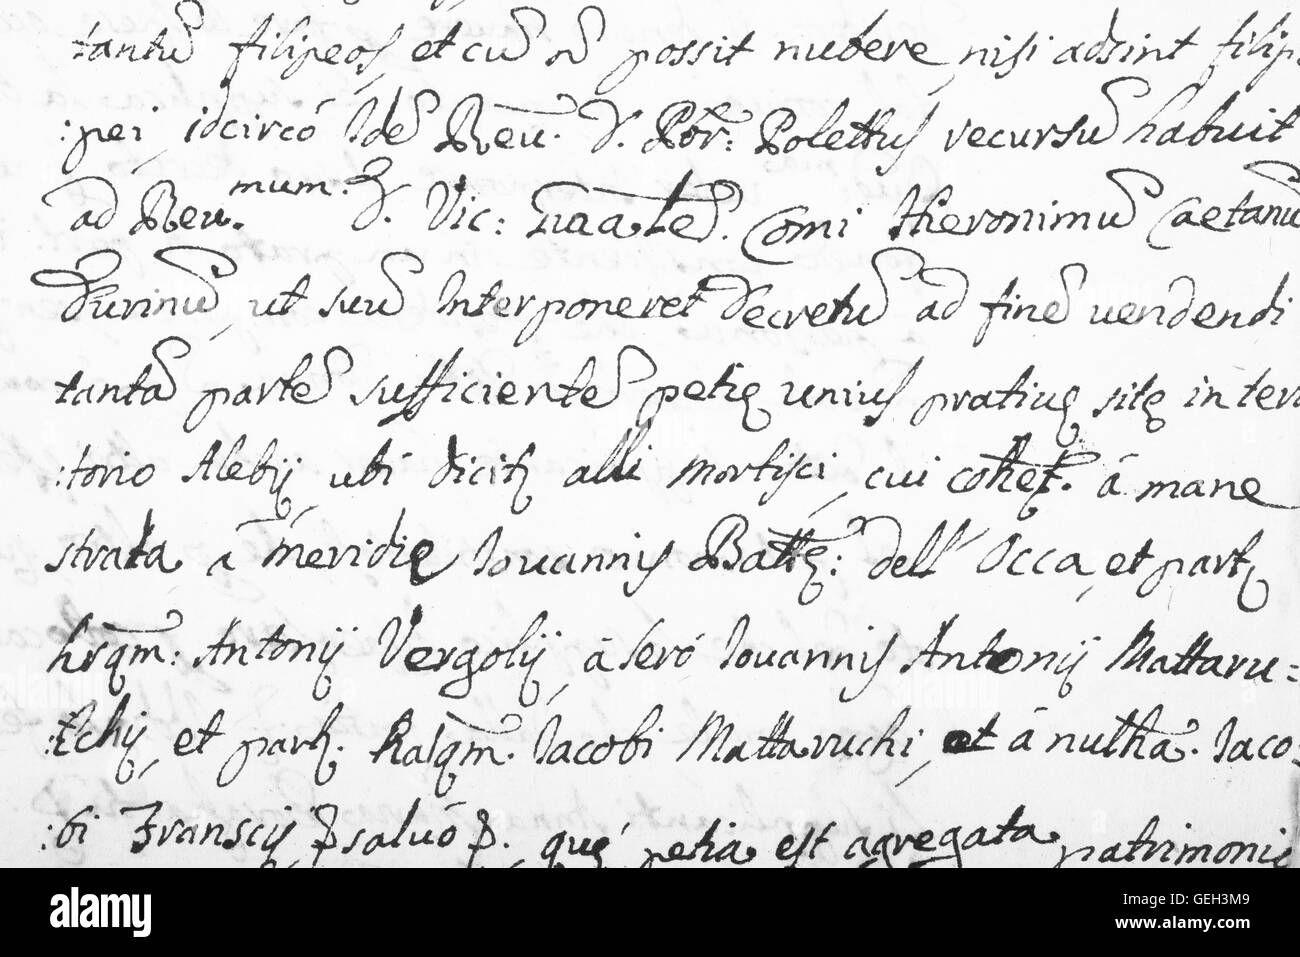 tantũ filipeos, et cũ nõ possit nubere, nisi adsint filip
:pei, idcircó Idẽ Reu. D. Pbr: Polettus recursũ habuit
ad Reu.mum: D. Vic: Comi Hieronimũ Caetanũ
Durinũ, ut suũ Interponeret Decretũ ad finẽ uendendi
tantã partẽ sufficientẽ petię unius pratiuę sitę in terri
:torio Alebij, ubi dicitʒ alli mortisci, cui cohęt. á mane
strata á meridie Iouannis Battę: dell' Occa, et partʒ
hrqm: Antonij Vergolij, á seró Iouannis Antonij Mattaru=
:tchij, et partʒ. hasqm: Iacobi Mattaruchi, et á nulhã. Iaco:
:bi Franscij salvó quę petia est agregata patrimonij
alamy
a
alamy
Image ID: GEH3M9
www.alamy.com